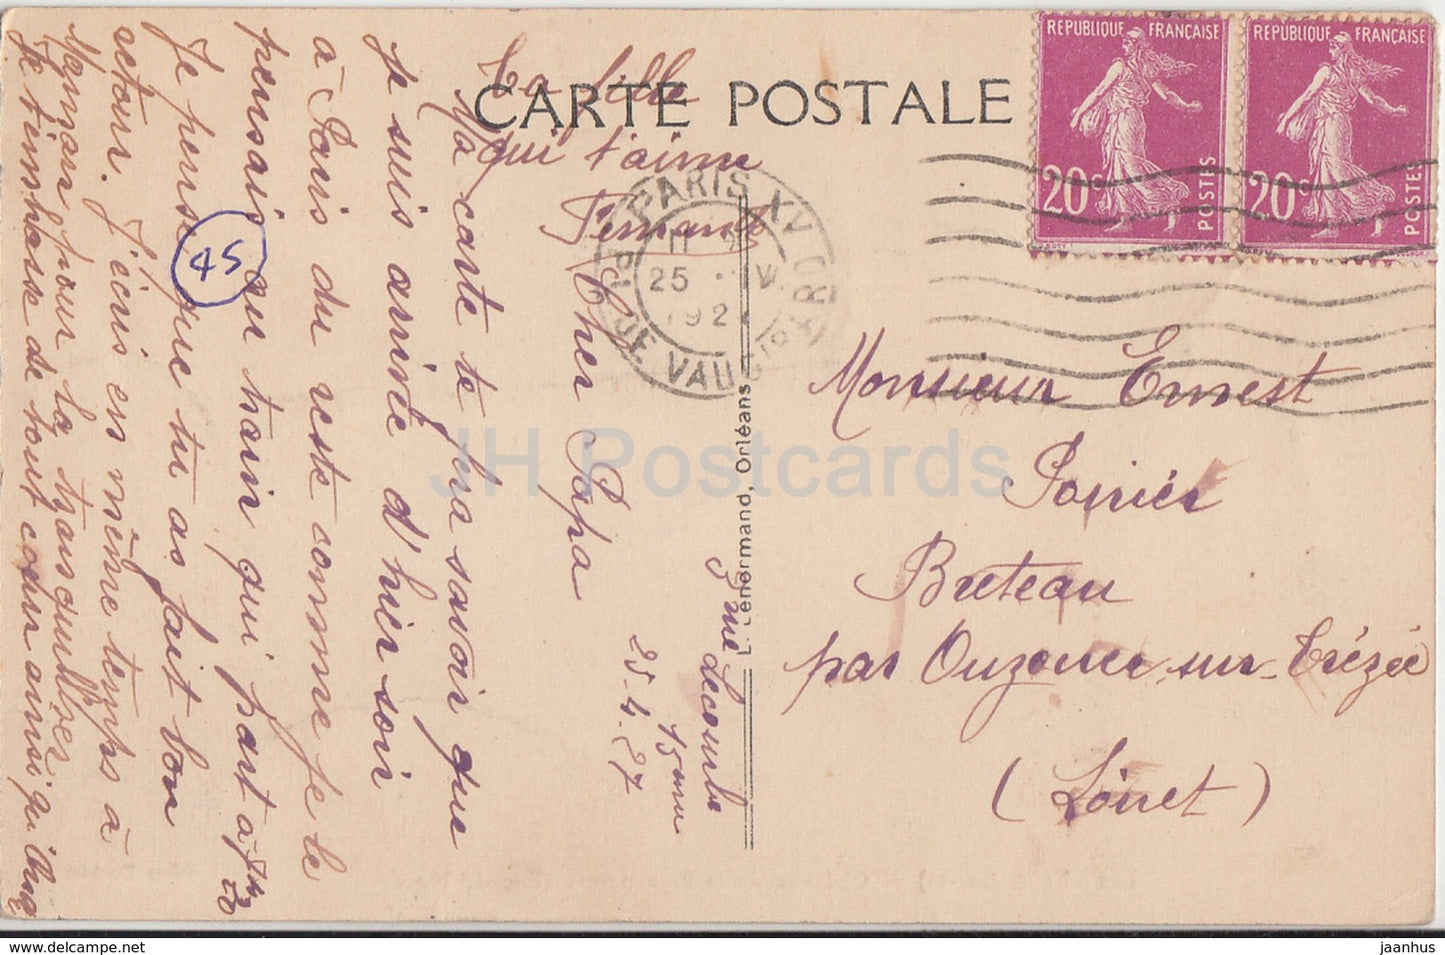 CARTE POSTALE
REPUBLIQUE FRANÇAISE
20c
POSTES
REPUBLIQUE FRANÇAISE
20c
POSTES
PARIS XV
25 IV
192
DE VAUGIRARD
45
5 rue Lecourbe
15ème
25.4.27
Cher Papa
Ma carte te fra savoir que
je suis arrivée d'hier soir
à Paris du reste comme je le
pensais au train qui part à
Je pense que tu as fait bon
retour. J'écris en même temps à
pour la tranquilliser
Je t'embrasse de tout cœur ainsi qu
Ta fille
qui t'aime
Fernande
L. Lenormand, Orléans
Monsieur Ernest
Poirier
Breteau
par Ouzouer-sur-Trézée
(Loiret)
JH Postcards
www.delcampe.net
jaanhus